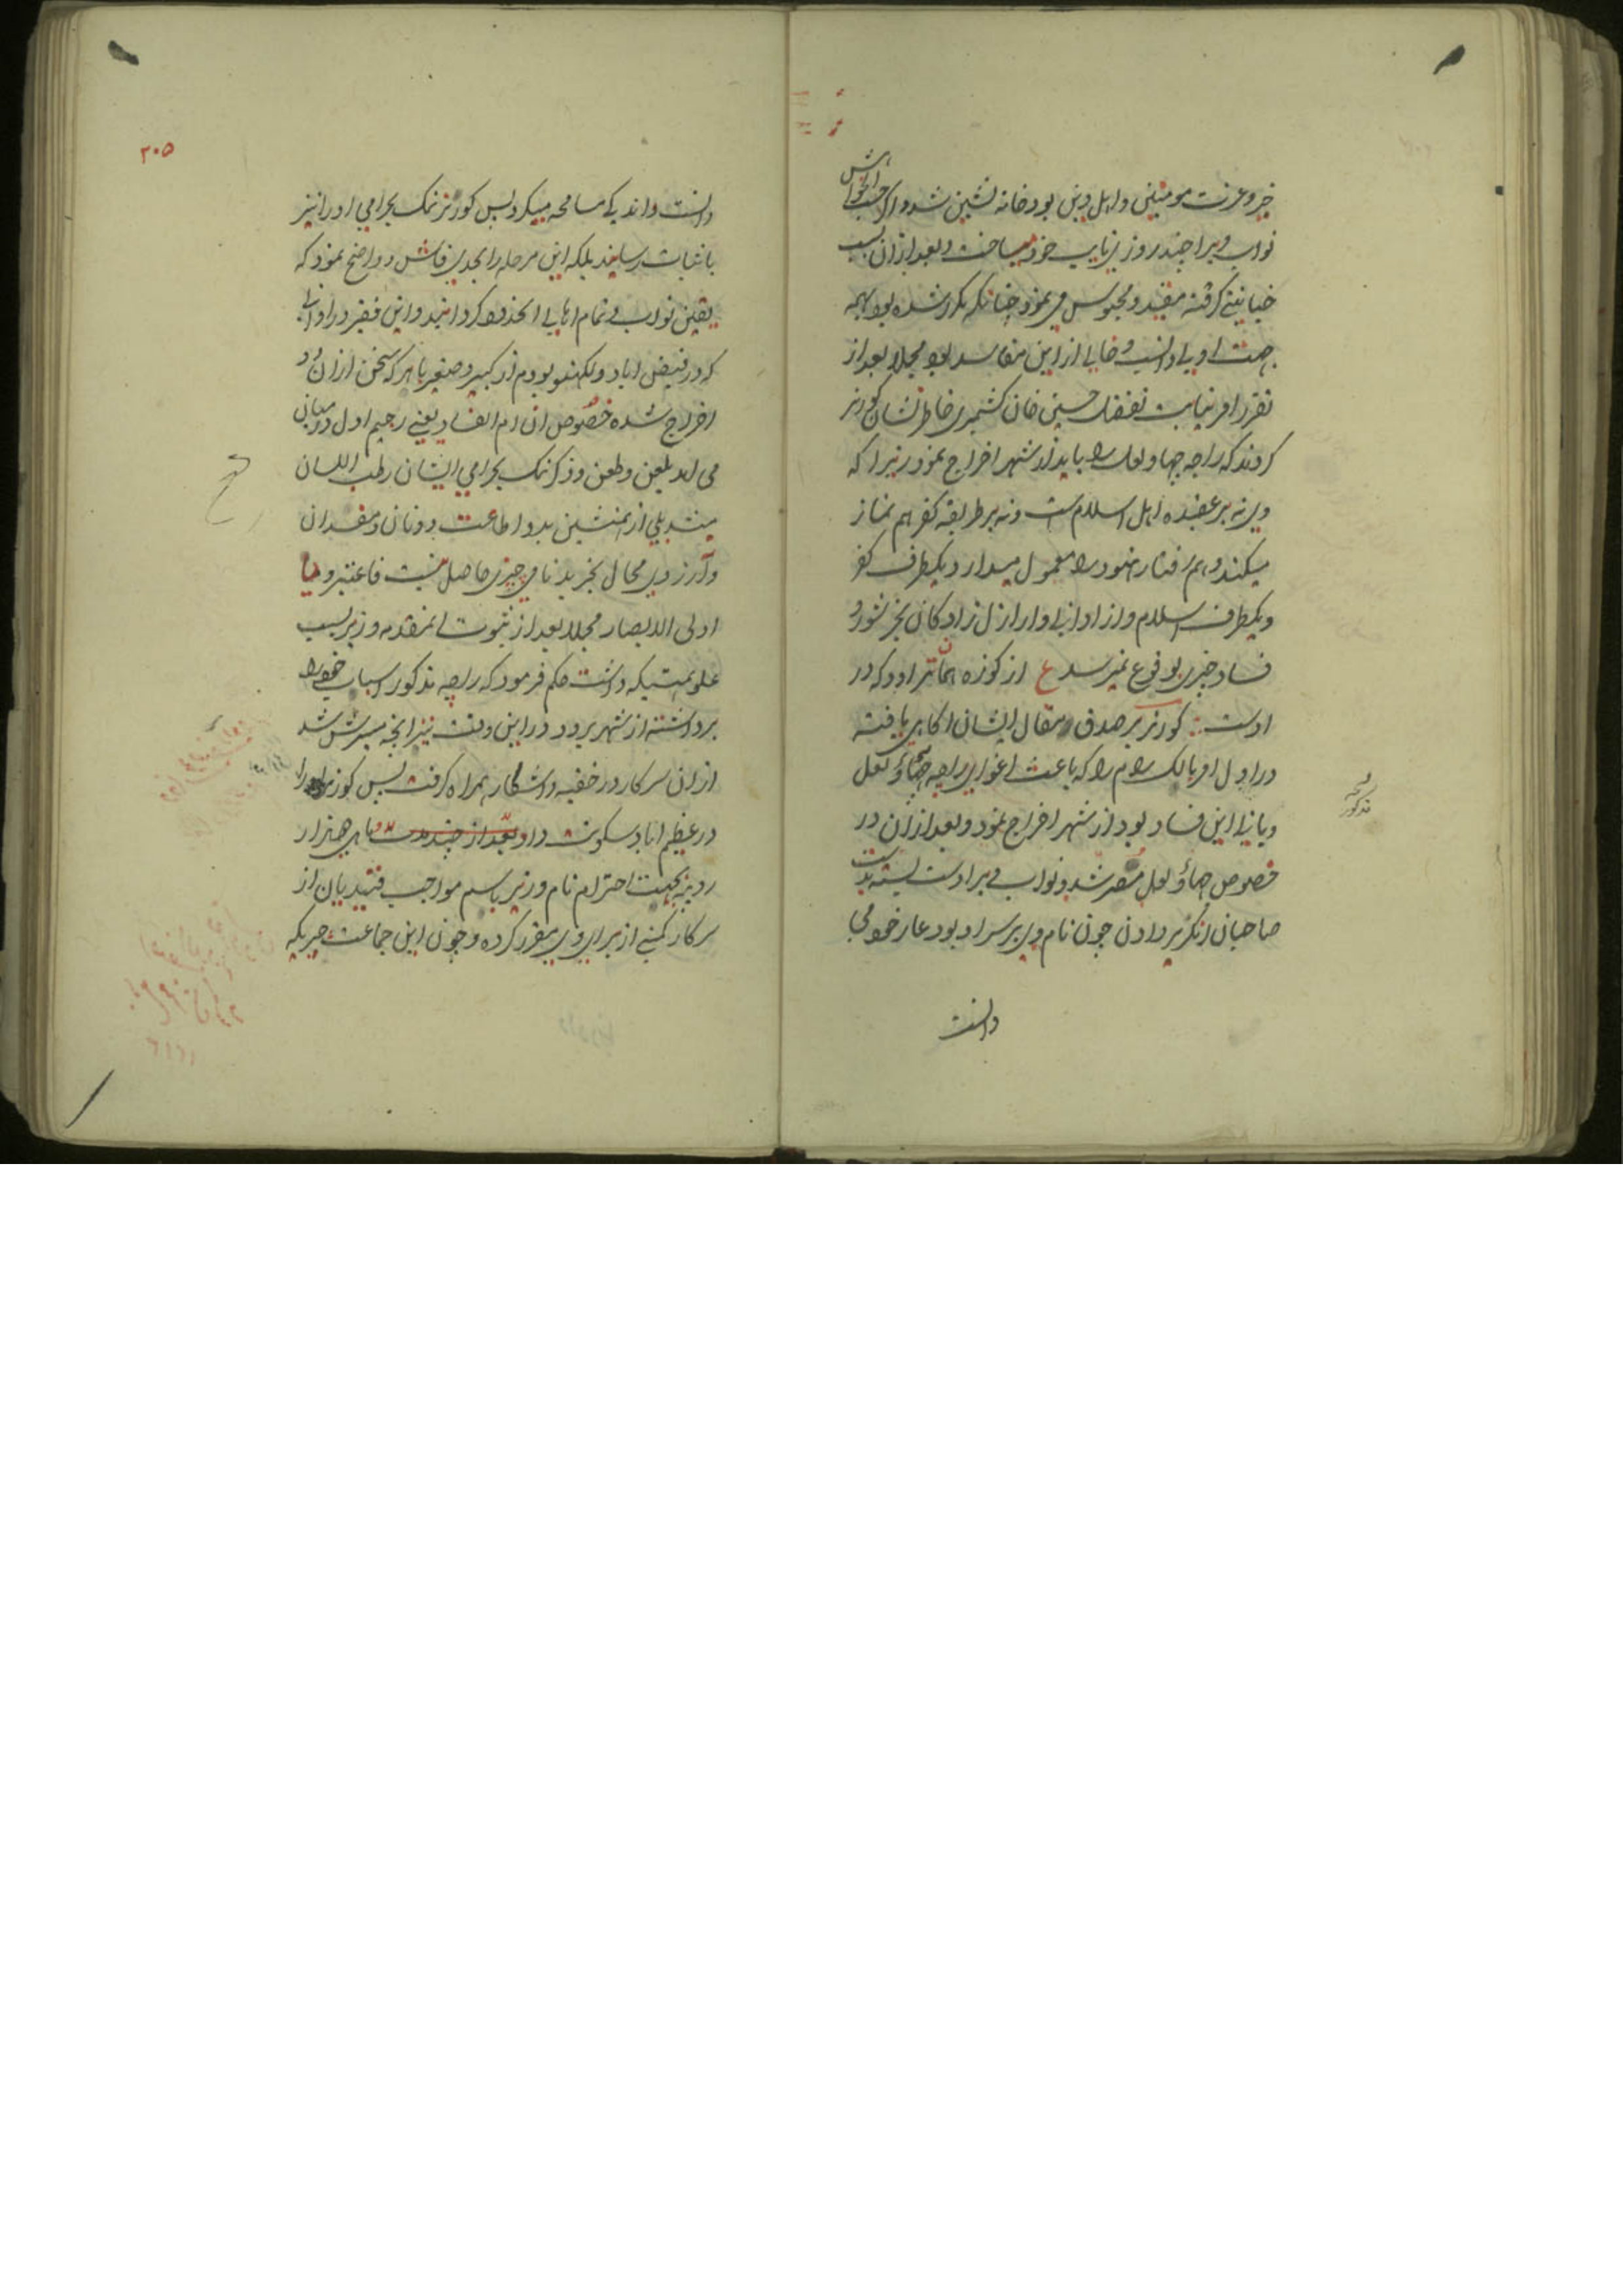 خیر و عزت مومنین و اهل دین بود خانه نشین شد و اکر حسب الخواهش
نواب ویرا چند روز نایب خود میساخت و بعد ازان بسبب
خیانتی کرفته مقید و محبوس می نمود چنانکه مکرر شده بود بهمه
جهت اولی دانست و خالی از این مفاسد بود مجملا بعد از
تقرر امر نیابت تفضل حسین خان کشمیری خاطرنشان کورنر
کردند که راجه جهاولعل را باید از شهر اخراج نمود زیرا که
وی نه بر عقیده اهل اسلام است و نه بر طریقه کفر هم نماز
میکند و هم رفتار هنود را معمول میدارد یکطرف کفر
و یکطرف اسلام و از ادانی و اراذل زادکان بجز شور و
فساد چیزی بوقوع نمیرسد ع از کوزه همان تراود که در
اوست کورنر بر صدق مقال ایشان اکاهی یافته
در اول امر بالک رام را که باعث اغوای راجه جهاولعل
و بانی این فساد بود از شهر اخراج نمود و بعد ازان در
خصوص جهاولعل مصر شد و نواب ویرا دست بسته بدست
صاحبان انکریز دادن چون نام وی بر سر او بود عار خود می
دانست
راجه
مذکور
۲۰۵
دانست و اندکی مسامحه میکرد پس کورنر نمک بحرامی او را نیز
باثبات رسانید بلکه این مرحله را بحدی فاش و واضح نمود که
یقین نواب و تمام اهالی ان حدود کردانید و این فقیر در اوانی
که در فیض اباد و لکهنو بودم از کبیر و صغیر با هر که سخن ازان دو
اخراج شده خصوص ان ام الفساد یعنی رجیم اول در میان
می امد بلعن و طعن و ذکر نمک بحرامی ایشان رطب اللسان
میشد بلی از همنشین بد و اطاعت دونان و مفسدان
و ارزوی محال بجز بدنامی چیزی حاصل نیست فاعتبروا یا
اولی الابصار مجملا بعد از ثبوت اینمقدمه وزیر بسبب
علو همتیکه داشت حکم فرمود که راجه مذکور اسباب خود را
برداشته از شهر برود در این وقت نیز انچه میسرش شد
ازان سرکار در خفیه و اشکار همراه کرفت پس کورنر او را
در عظیم اباد سکونت داد و بعد از چند مدت ماهی هزار
روپیه بجهت احترام نام وزیر باسم مواجب قیدیان از
سرکار کمپنی از برای وی مقرر کرده و چون این جماعت چیریکه